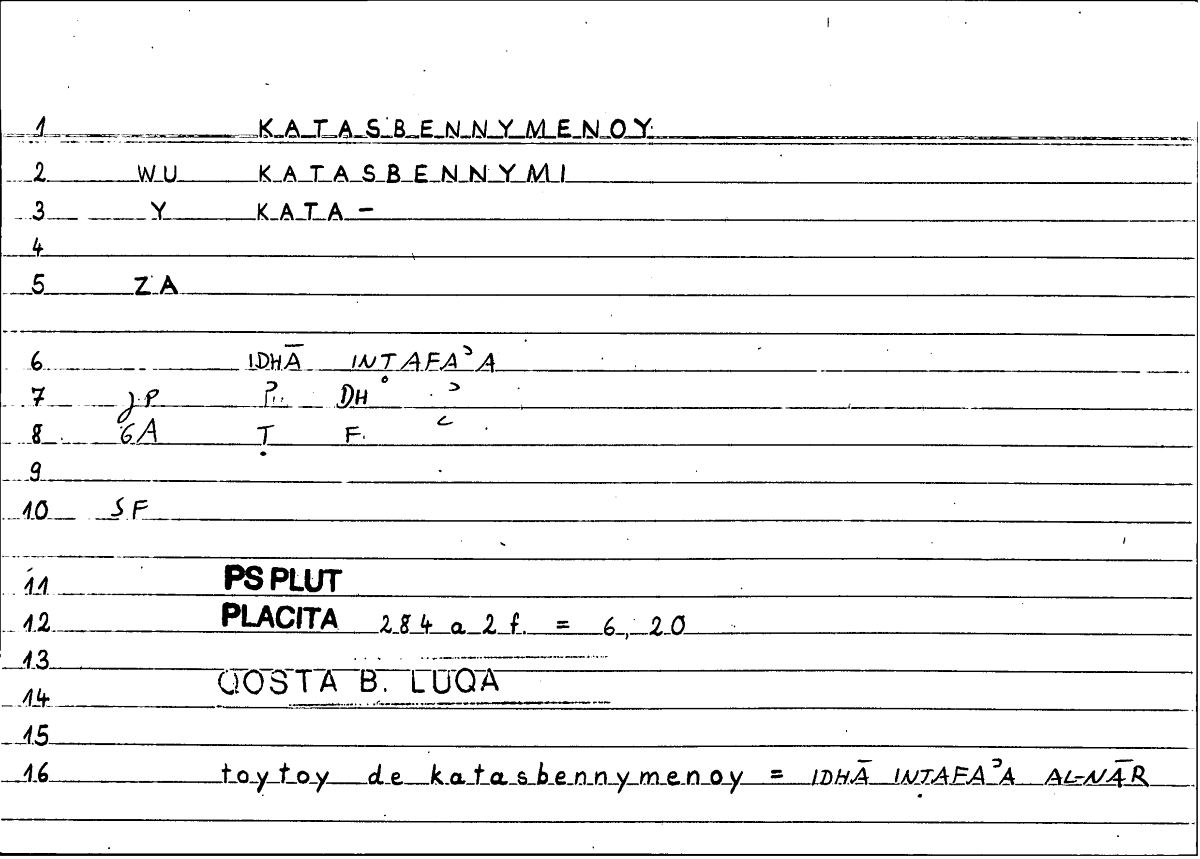 1 KATASBENNYMENOY
2 WU KATASBENNYMI
3 Y KATA-
4
5 ZA
6 IDHĀ INTAFAʾA
7 JP DH ʾ
8 GA Ṭ F
9
10 SF
11 PS PLUT
12 PLACITA 284 a 2 f. = 6, 20
13
QOSTA B. LUQA
14
15
16 toytoy de katasbennymenoy = IDHĀ INṬAFAʾA AL-NĀR